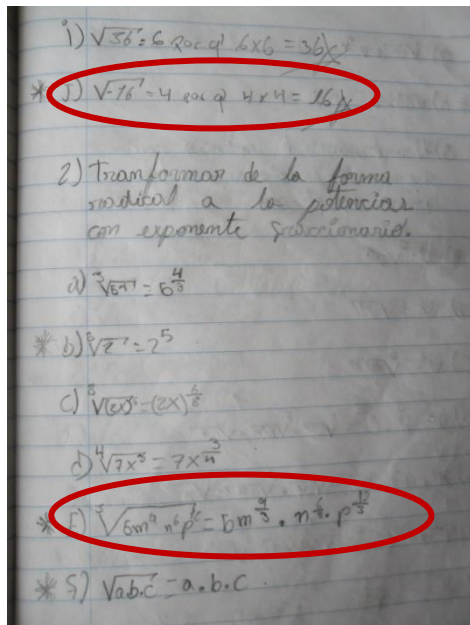 i) √36 = 6 porq' 6x6 = 36
* J) √-16 = 4 porq' 4x4 = 16
2) Tranformar de la forma
radical a la potencias
con exponente fraccionario.
a) ³√5⁴ = 5^(4/3)
* b) ⁵√2 = 2⁵
c) ⁸√(2x)⁶ = (2x)^(6/8)
d) ⁴√7x³ = 7x^(3/4)
* f) ³√5m⁹ n⁶ p¹² = 5m^(9/3) . n^(6/3) . p^(12/3)
* g) √a.b.c = a.b.c